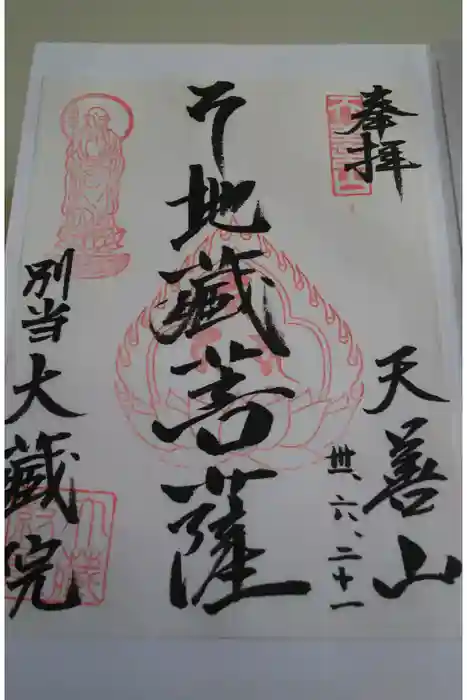 奉拝
天善山
卅、六、二十一
地蔵菩薩
別当大蔵院